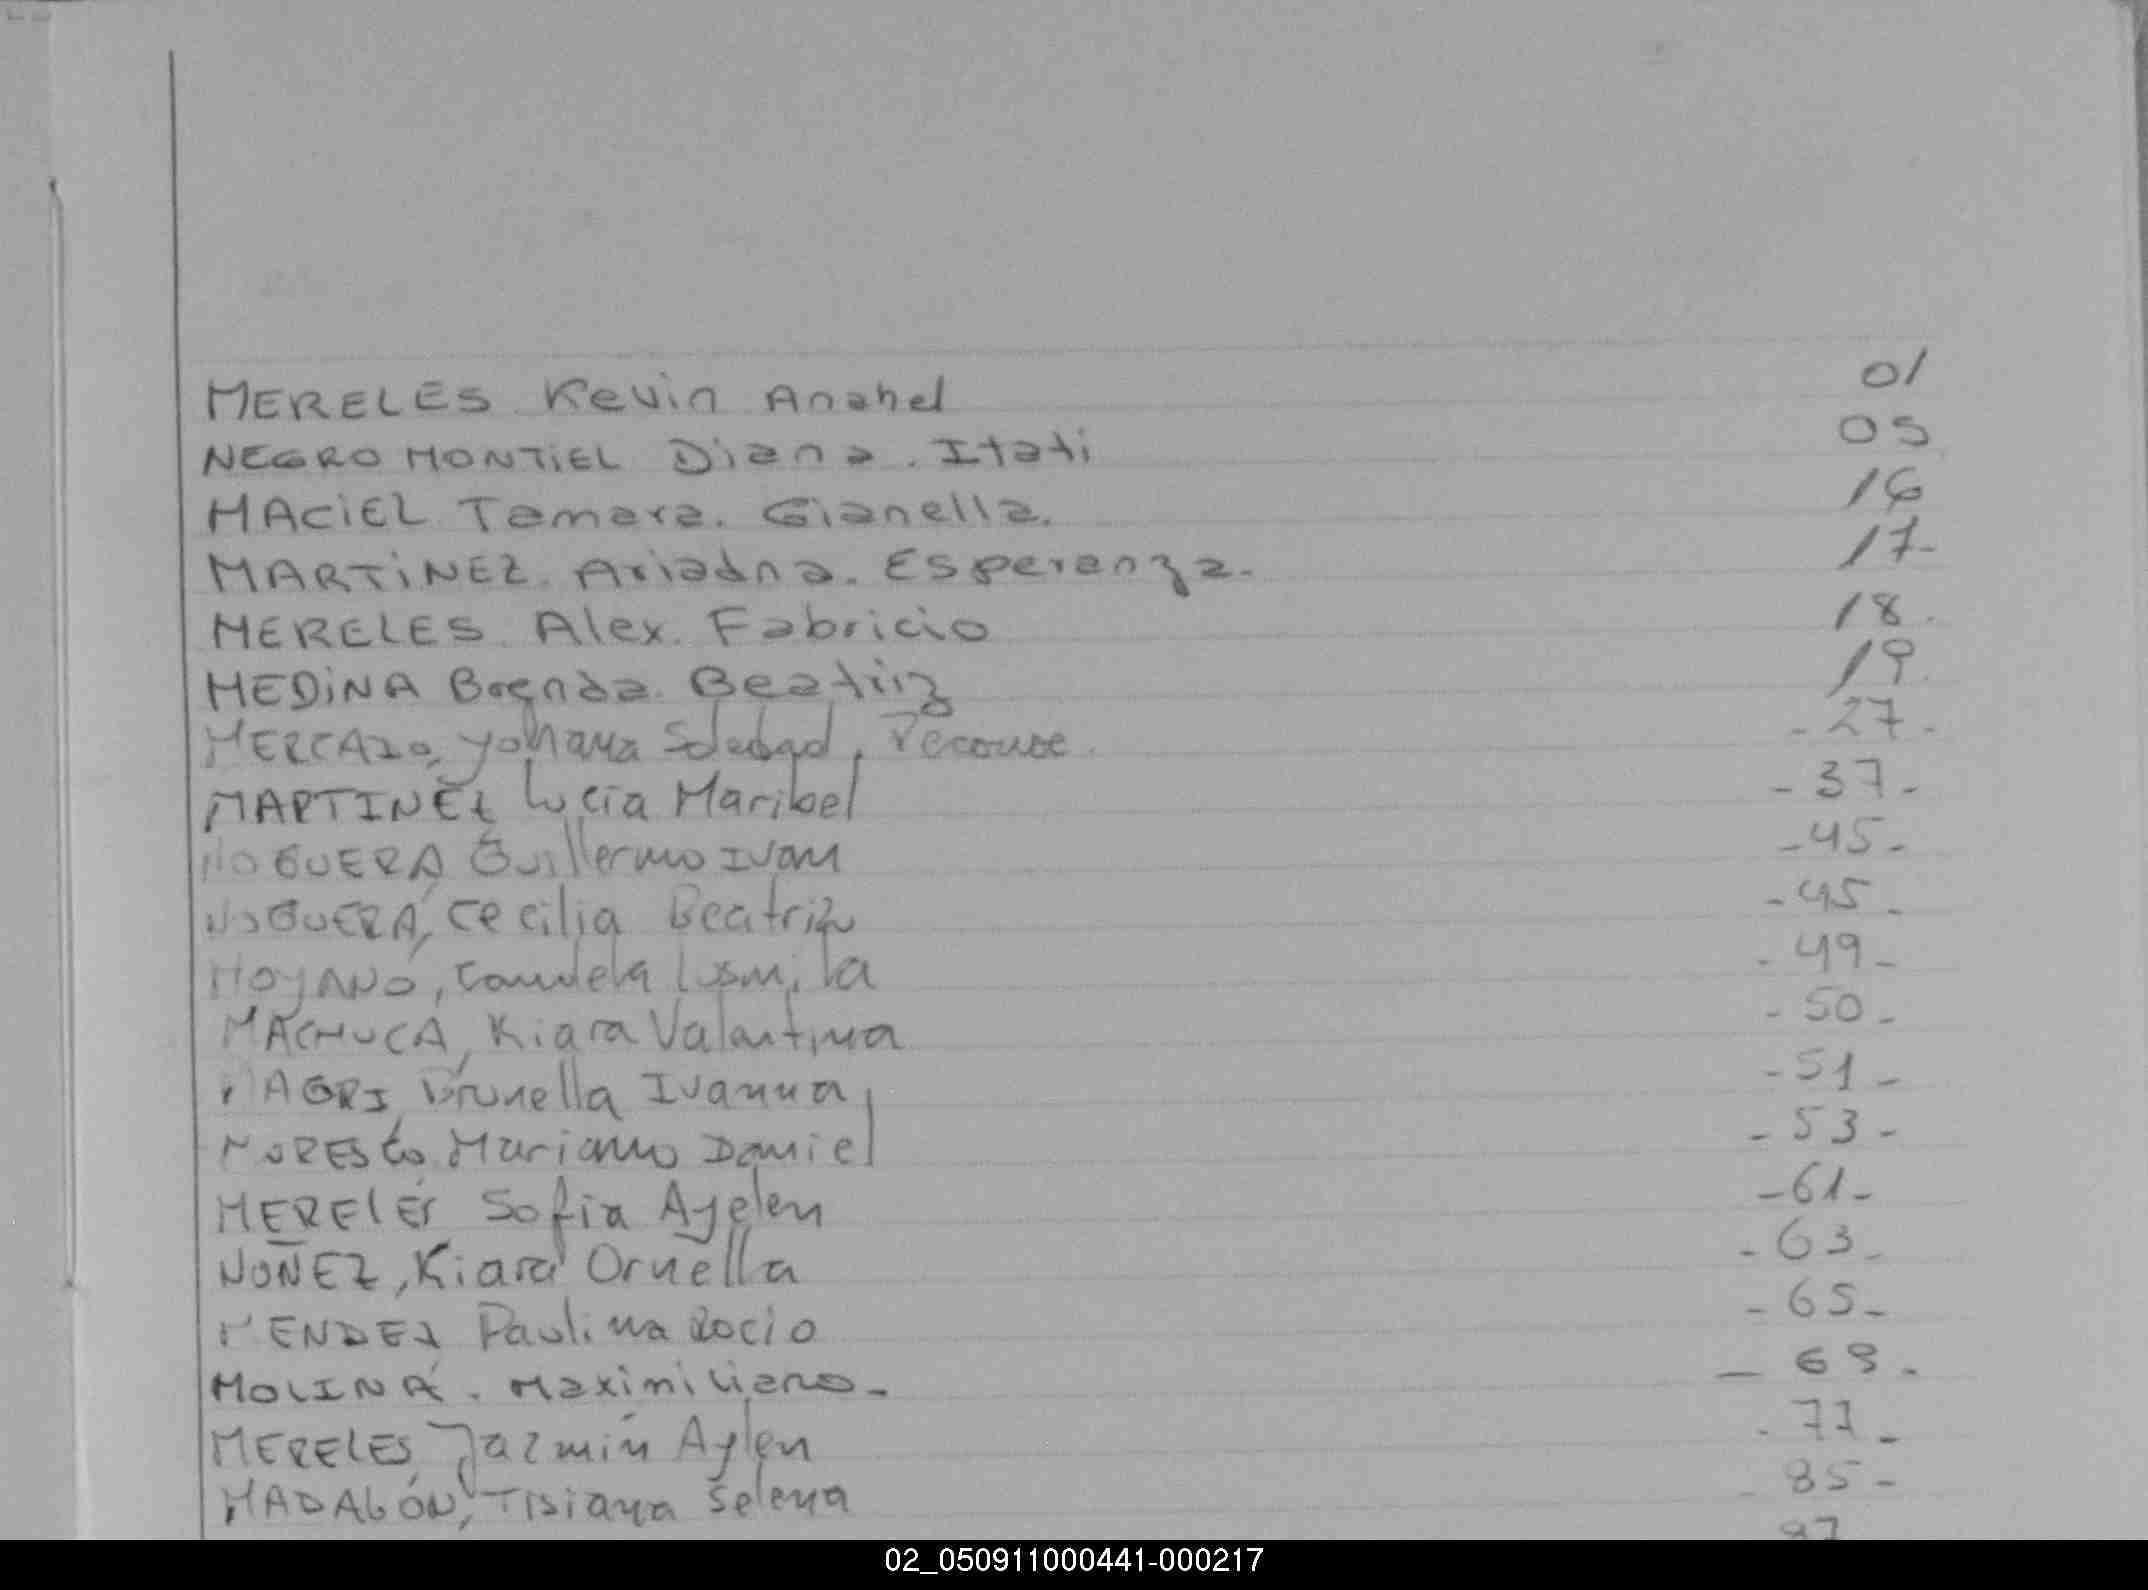 MERELES Kevin Anahel 01
NEGRO MONTIEL Diana. Itati 05
MACIEL Tamara. Gianella. 16
MARTINEZ. Ariadna. Esperanza. 17-
MERELES Alex. Fabricio 18.
MEDINA Brenda. Beatriz 19.
MERCADO, Yohana Soledad, - 27 -
MARTINEZ Lucia Maribel - 37 -
NOGUERA, Guillermo Ivan - 45 -
NOGUERA, Cecilia Beatriz - 45 -
MOYANO, Candela Lusmila - 49 -
MACHUCA, Kiara Valantina - 50 -
MAGRI, Brunella Ivanna - 51 -
Mariano Daniel - 53 -
MERELES Sofia Ayelen - 61 -
NUÑEZ, Kiara Ornella - 63 -
MENDEZ Paulina Rocio - 65 -
MOLINA. Maximiliano. - 69 -
MERELES, Jazmín Aylen - 77 -
Tisiana Selena - 85 -
97
02_050911000441-000217